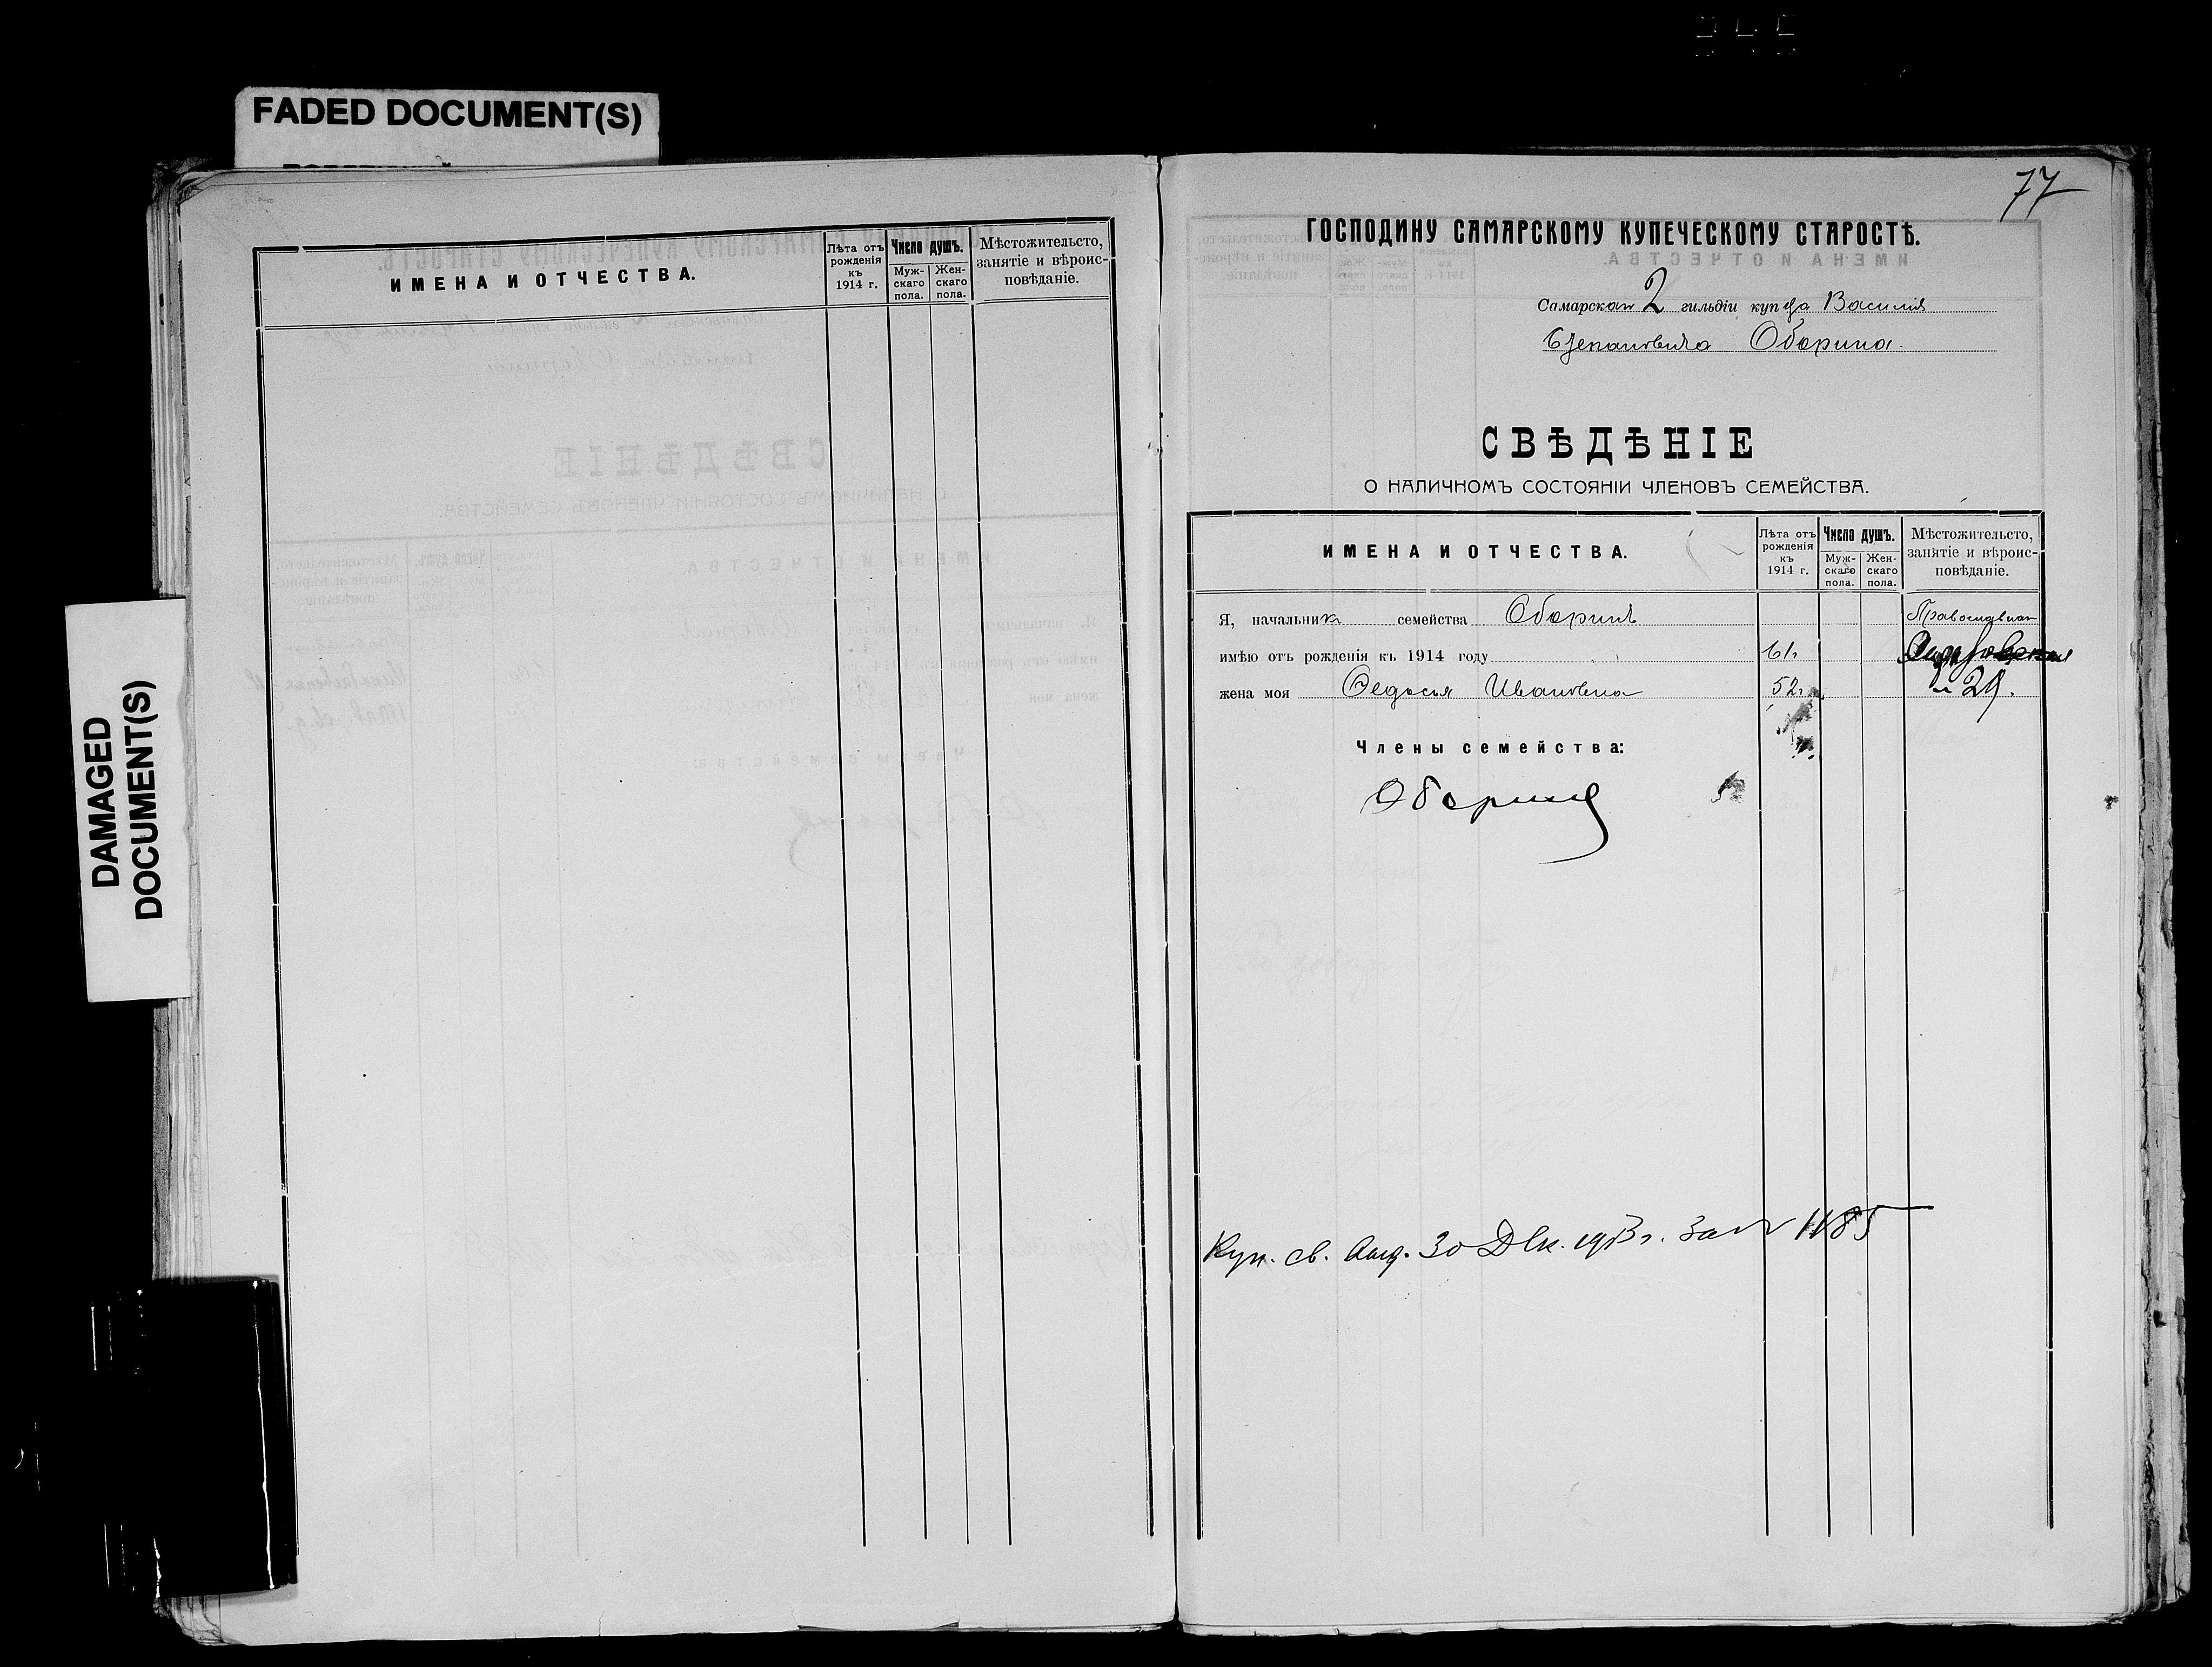 FADED DOCUMENT(S)
DAMAGED
DOCUMENT(S)
ИМЕНА И ОТЧЕСТВА.
Лѣта отъ
рожденія
къ
1914 г.
Число душъ.
Муж-
скаго
пола.
Жен-
скаго
пола.
Мѣстожительсто,
занятіе и вѣроис-
повѣданіе.
77
ГОСПОДИНУ САМАРСКОМУ КУПЕЧЕСКОМУ СТАРОСТѢ.
Самарскаго 2 гильдіи купца Василія
Степановича Оборина.
СВѢДѢНІЕ
О НАЛИЧНОМЪ СОСТОЯНІИ ЧЛЕНОВЪ СЕМЕЙСТВА.
ИМЕНА И ОТЧЕСТВА.
Лѣта отъ
рожденія
къ
1914 г.
Число душъ.
Муж-
скаго
пола.
Жен-
скаго
пола.
Мѣстожительсто,
занятіе и вѣроис-
повѣданіе.
Я, начальник семейства Оборинъ
имѣю отъ рожденія къ 1914 году 61г
жена моя Федосья Ивановна 52г
№ 29.
Члены семейства:
Оборинъ
Куп. св. выд. 30 Дек. 1913 г. за № 11185